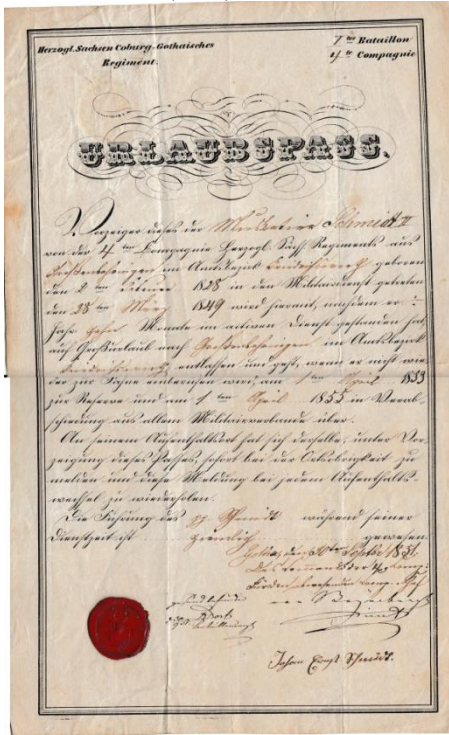 Herzogl. Sachsen Coburg-Gothaisches
Regiment.
1tes Bataillon
4te Compagnie
URLAUBSPASS.
Vorzeiger dieses der Musketier Schmidt II
von der 4ten Compagnie Herzogl. Sächs. Regiments aus
im Amtsbezirk geboren
den 2ten 1828 in den Militairdienst getreten
den 28ten März 1849 wird hiermit, nachdem er
Jahr Monate im activen Dienst gestanden hat,
auf Großurlaub nach im Amtsbezirk
entlassen und geht, wenn er nicht wie-
der zur Fahne einberufen wird, am 1ten April 1853
zur Reserve und am 1ten April 1855 in Verab-
schiedung aus allem Militairverbande über.
An seinem Aufenthaltsort hat sich derselbe, unter Vor-
zeigung dieses Passes, sofort bei der Ortsobrigkeit zu
melden und diese Meldung bei jedem Aufenthalts-
wechsel zu wiederholen.
Die Führung des Schmidt während seiner
Dienstzeit ist gewesen.
Gotha, den 1851.
Das Commando der 4. Comp.
Johann Ernst Schmidt.